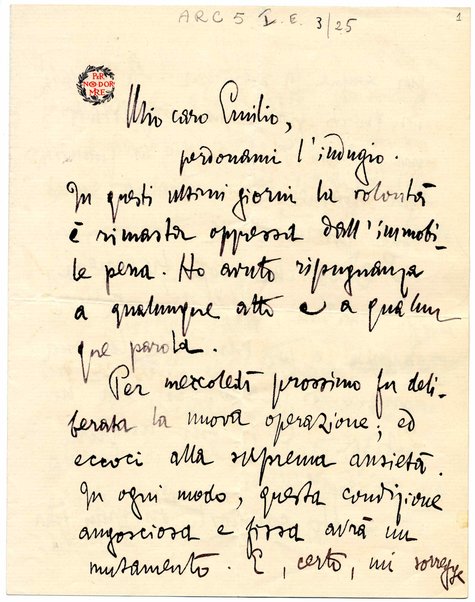 ARC 5 I. E. 3/25
1
PER
NON DOR
MIRE
Mio caro Emilio,
perdonami l'indugio.
In questi ultimi giorni la volontà
è rimasta oppressa dall'immobi-
le pena. Ho avuto ripugnanza
a qualunque atto e a qualun
que parola.
Per mercoledì prossimo fu deli-
berata la nuova operazione; ed
eccoci alla suprema ansietà.
In ogni modo, questa condizione
angosciosa e fissa avrà un
mutamento. E, certo, mi sorregge